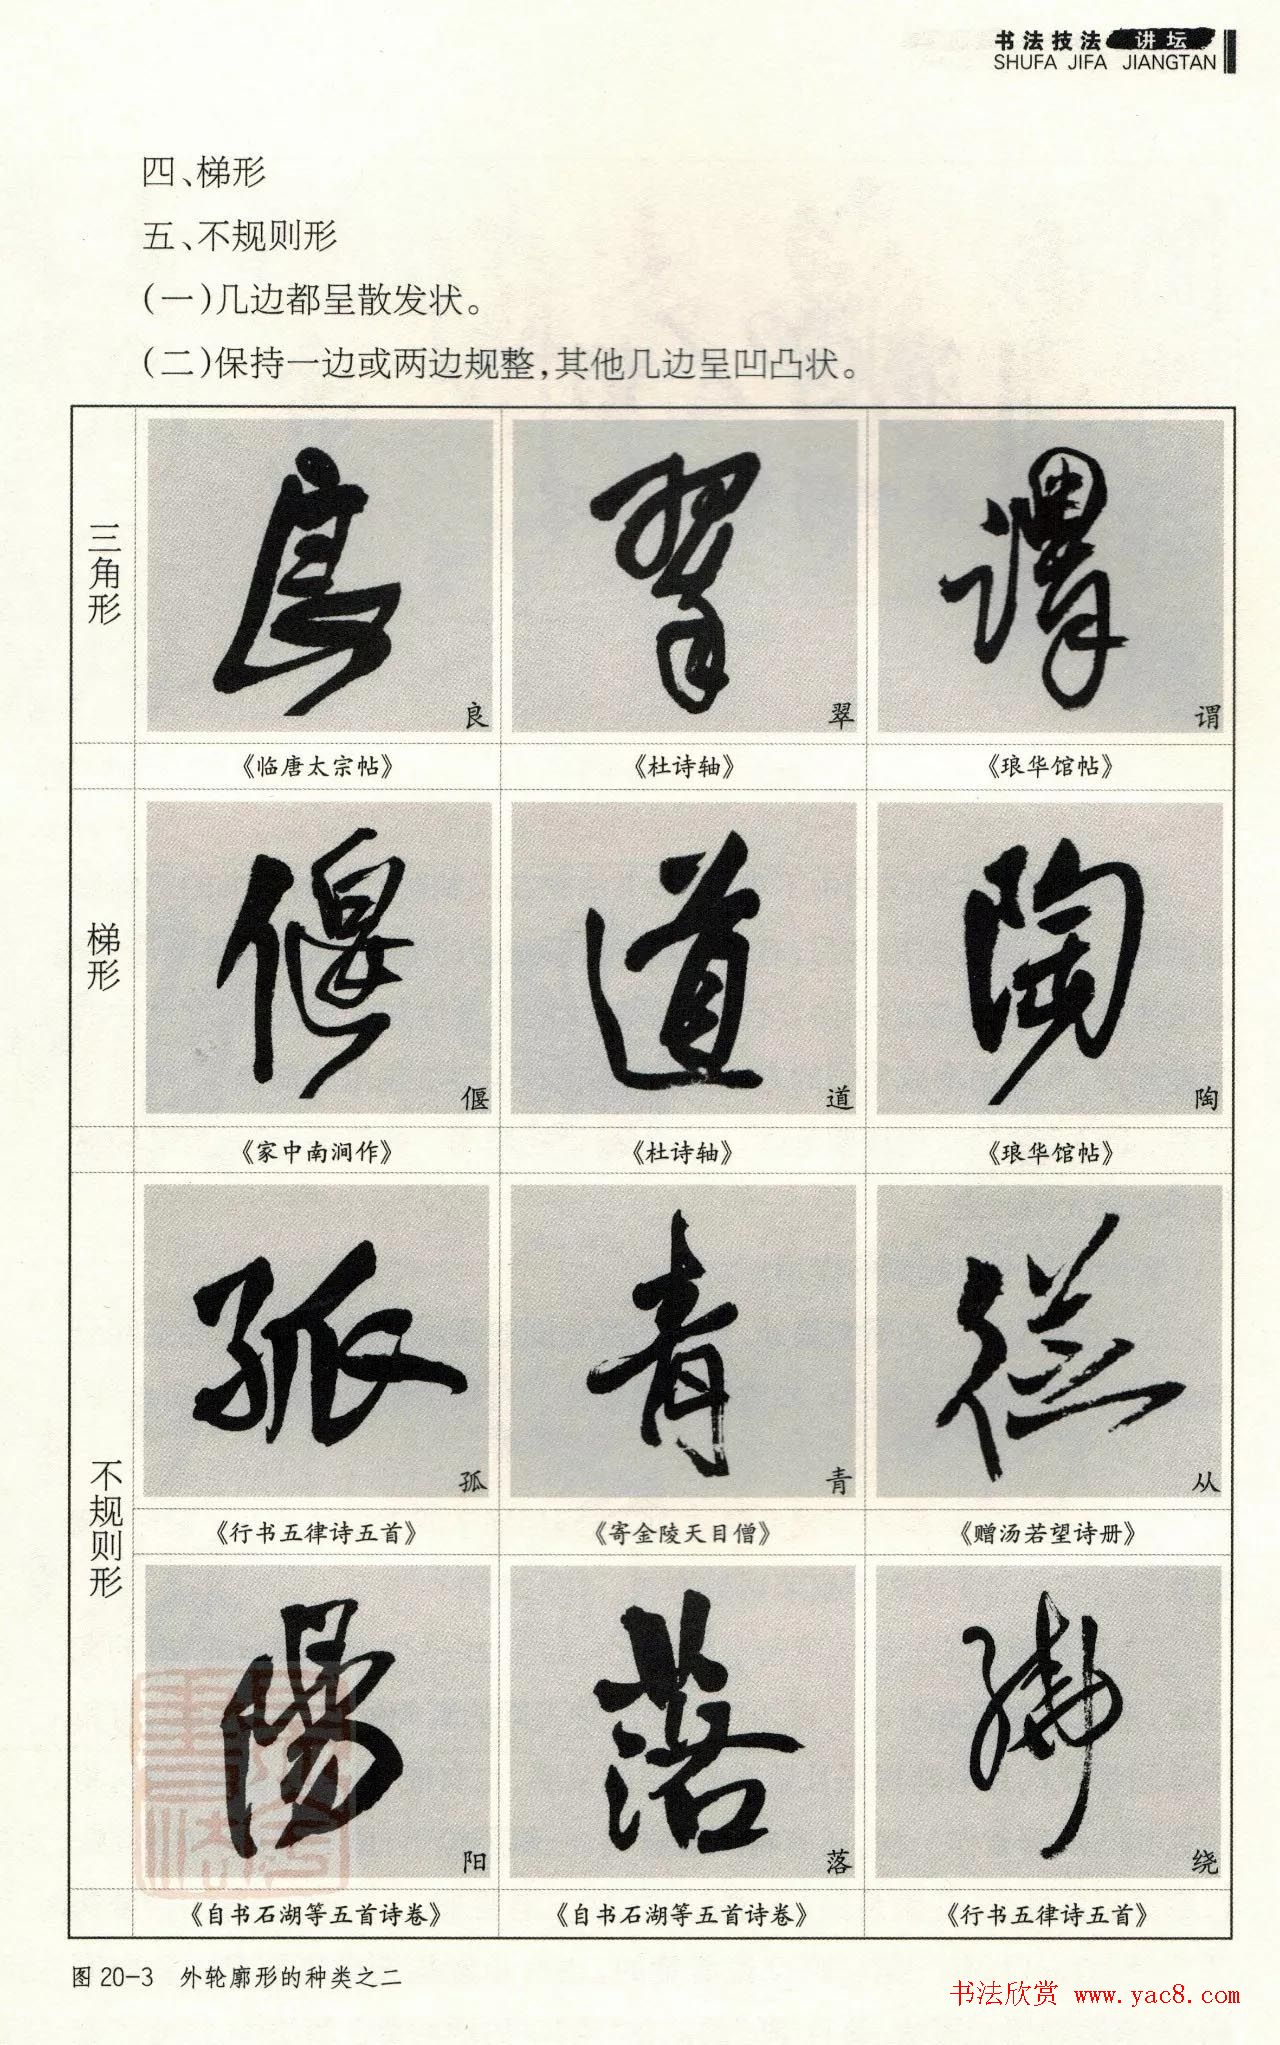 书法技法 讲坛
SHUFA JIFA JIANGTAN
四、梯形
五、不规则形
(一)几边都呈散发状。
(二)保持一边或两边规整,其他几边呈凹凸状。
三角形
良
翠
谓
《临唐太宗帖》
《杜诗轴》
《琅华馆帖》
梯形
偃
道
陶
《家中南涧作》
《杜诗轴》
《琅华馆帖》
不规则形
孤
青
从
《行书五律诗五首》
《寄金陵天目僧》
《赠汤若望诗册》
阳
落
绕
《自书石湖等五首诗卷》
《自书石湖等五首诗卷》
《行书五律诗五首》
图 20-3 外轮廓形的种类之二
书法欣赏 www.yac8.com